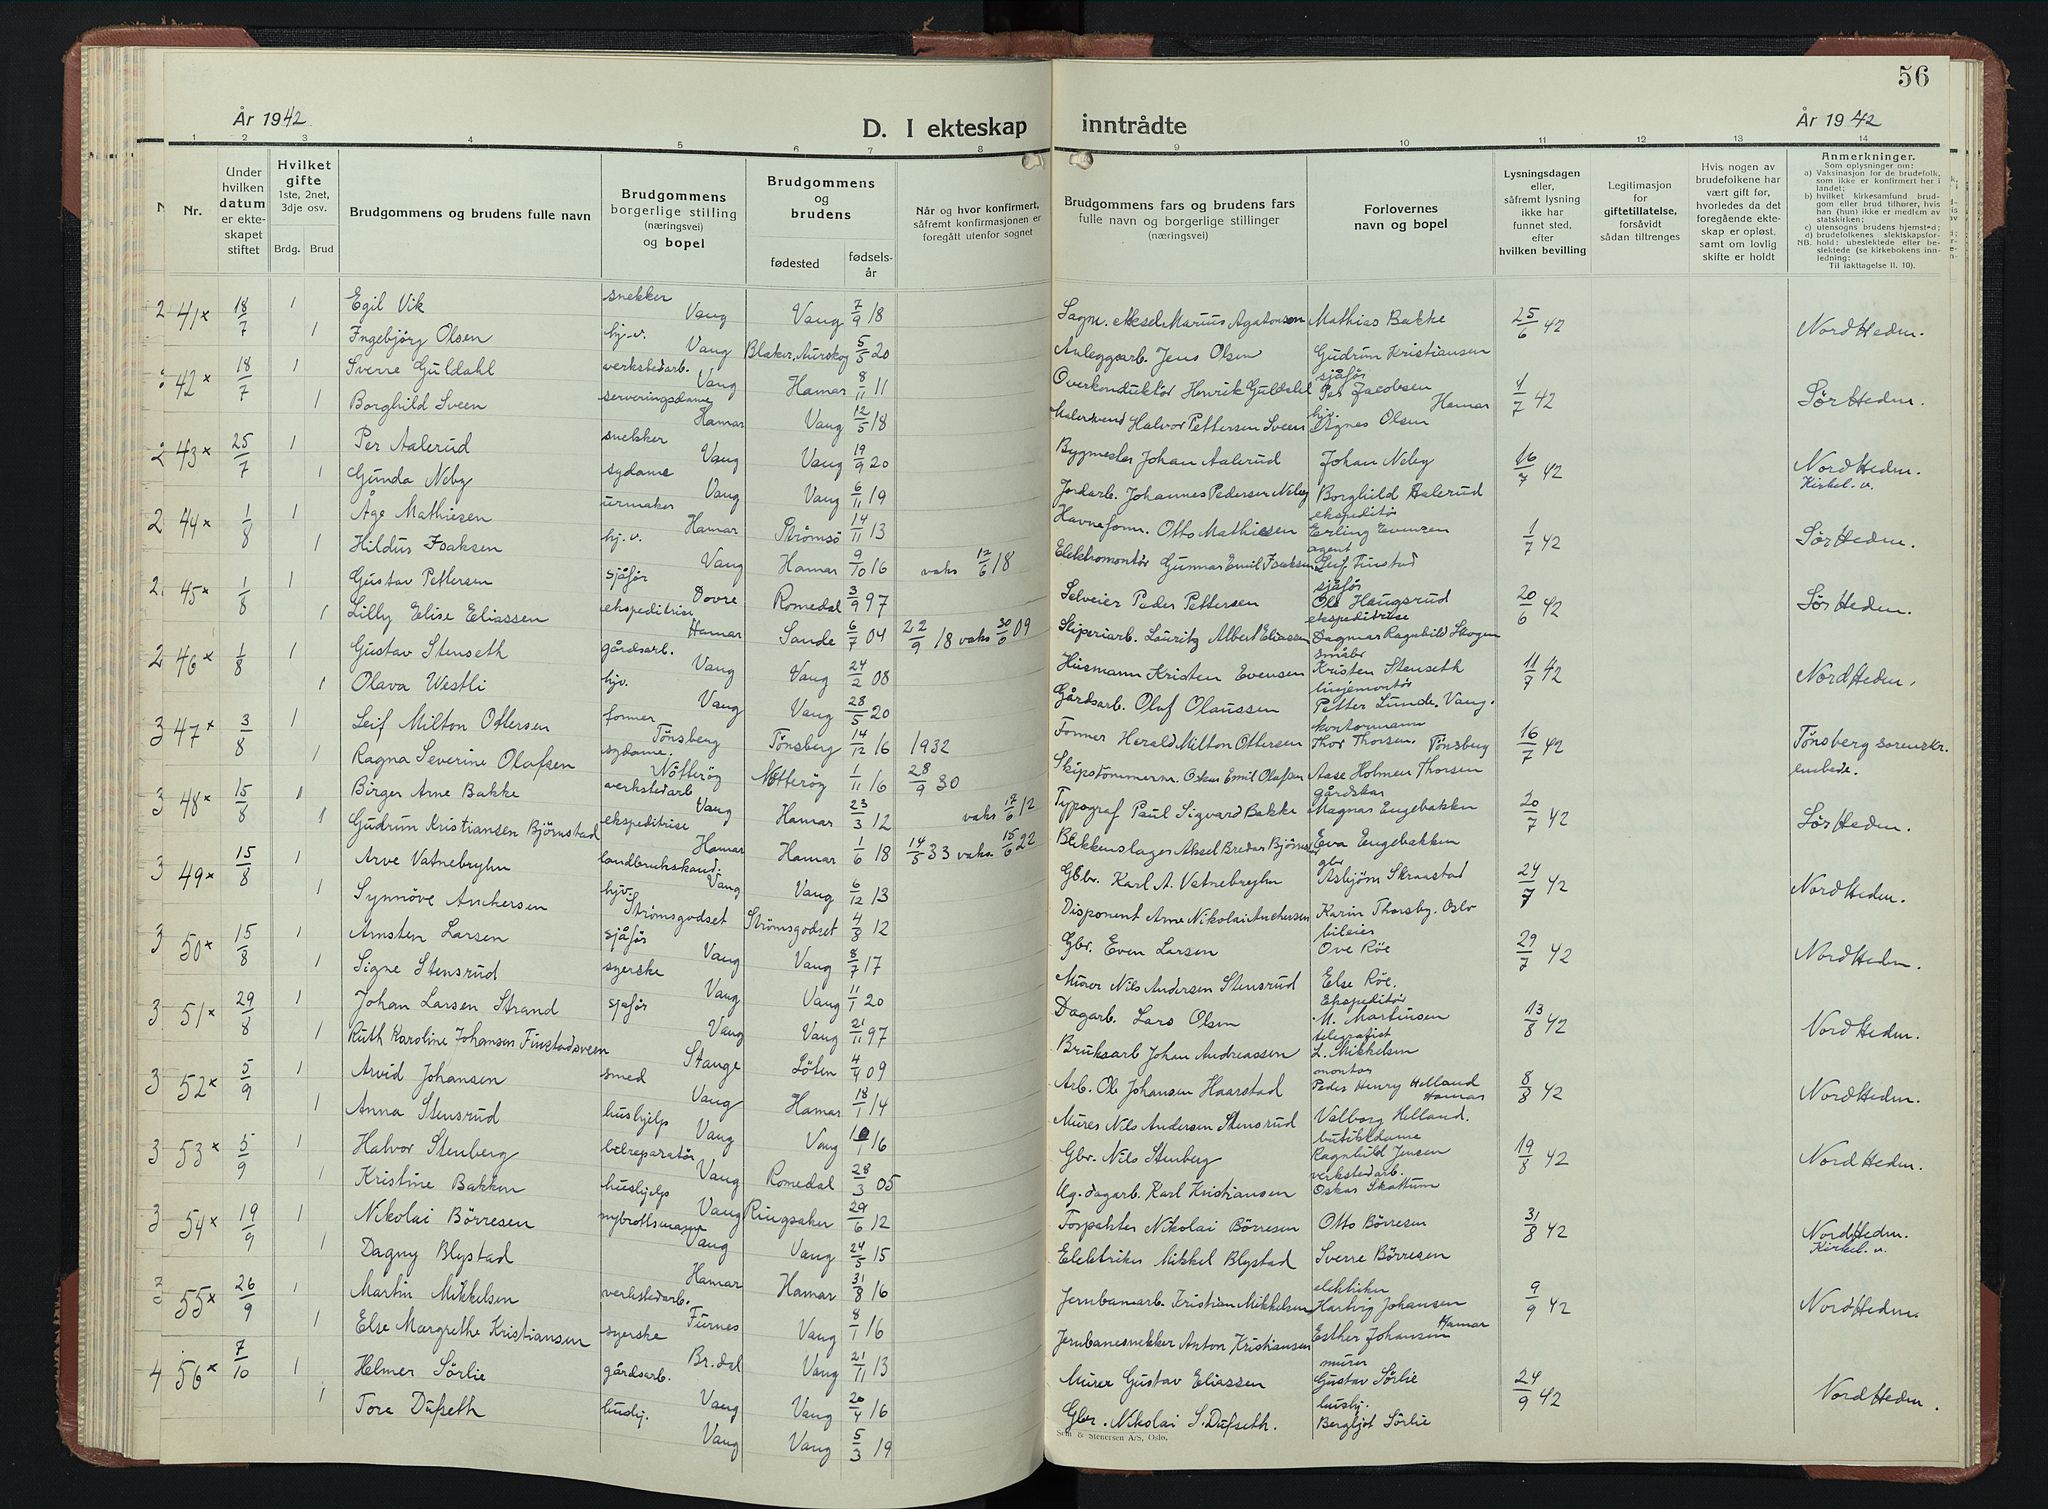 56
År 1942
D. I ekteskap inntrådte
År 1942
1 2 3 4 5 6 7 8 9 10 11 12 13 14
Nr.
Under hvilken datum er ekteskapet stiftet
Hvilket gifte 1ste, 2net, 3dje osv. Brdg. Brud
Brudgommens og brudens fulle navn
Brudgommens borgerlige stilling (næringsvei) og bopel
Brudgommens og brudens fødested fødselsår
Når og hvor konfirmert, såfremt konfirmasjonen er foregått utenfor sognet
Brudgommens fars og brudens fars fulle navn og borgerlige stillinger (næringsvei)
Forlovernes navn og bopel
Lysningsdagen eller, såfremt lysning ikke har funnet sted, efter hvilken bevilling
Legitimasjon for giftetillatelse, forsåvidt sådan tiltrenges
Hvis nogen av brudefolkene har vært gift før, hvorledes da det foregående ekteskap er opløst, samt om lovlig skifte er holdt
Anmerkninger.
Som oplysninger om:
a) Vaksinasjon for de brudefolk, som ikke er konfirmert her i landet;
b) hvilket kirkesamfund brudgom eller brud tilhører, hvis han (hun) ikke er medlem av statskirken;
c) utensogns brudens hjemsted;
d) brudefolkenes slektskapsforhold: ubeslektede eller beslektede (se kirkebokens innledning;
NB. Til iakttagelse ll. 10).
41 x 18/7 1 Egil Vik snekker Vang Vang 7/9 18 Sagm. Aksel Marius Agatonsen Mathias Bakke 25/6 42 Nord Hedm.
1 Ingebjørg Olsen hj.v. Vang Blaker, Aurskog 5/5 20 Anleggsarb. Jens Olsen Gudrun Kristiansen
42 x 18/7 1 Sverre Guldahl verkstedarb. Vang Hamar 8/11 11 Overkonduktør Henrik Guldahl sjåfør Per Jacobsen Hamar 1/7 42 Sør Hedm.
1 Borghild Sveen serveringsdame Hamar Vang 12/5 18 Malersvend Halvor Pettersen Sveen hjv. Agnes Olsen
43 x 25/7 1 Per Aalerud snekker Vang Vang 19/9 20 Bygmester Johan Aalerud Johan Neby 16/7 42 Nord Hedm. Kirkel. v.
1 Gunda Neby sydame Vang Vang 6/11 19 Jordarb. Johannes Pedersen Neby Borghild Aalerud
44 x 1/8 1 Åge Mathiesen urmaker Hamar Strømsø 14/11 13 Havneform. Otto Mathiesen ekspeditør Erling Evensen 1/7 42 Sør Hedm.
1 Hildus Isaksen hj.v. Vang Hamar 9/10 16 vaks 12/6 18 Elektromontør Gunnar Emil Isaksen agent Leif Finstad
45 x 1/8 1 Gustav Pettersen sjåfør Dovre Romedal 3/9 97 Selveier Peder Pettersen sjåfør Ole Haugsrud 20/6 42 Sør Hedm.
1 Lilly Elise Eliassen ekspeditrise Hamar Sande 6/7 04 22/9 18 vaks 30/6 09 Skiperiarb. Lauritz Albert Eliassen ekspeditrise Dagmar Ragnhild Skogen
46 x 1/8 1 Gustav Stenseth gårdsarb. Vang Vang 24/2 08 Husmann Kristen Evensen småbr Kristen Stenseth 11/7 42 Nord Hedm.
1 Olava Westli hjv. Vang Vang 28/5 20 Gårdsarb. Olaf Olaussen linjemontør Petter Lunde. Vang.
47 x 3/8 1 Leif Milton Ottersen former Tønsberg Tønsberg 14/12 16 1932 Former Herald Milton Ottersen kontormann Thor Thorsen. Tønsberg 16/7 42 Tønsberg sorenskr. embede.
1 Ragna Severine Olafsen sydame. Nøtterøy Nøtterøy 1/11 16 28/9 30 Skipstømmerm. Oskar Emil Olafsen Aase Holmen Thorsen
48 x 15/8 1 Birger Arne Bakke verkstedarb Vang Hamar 23/3 12 vaks 17/6 12 Typograf Paul Sigvard Bakke gårdsbr Magnar Engebakken 20/7 42 Sør Hedm.
1 Gudrun Kristiansen Bjørnstad ekspeditrise Hamar Hamar 1/6 18 14/5 33 vaks. 15/6 22 Blikkenslager Aksel Bredar Bjørnstad Eva Engebakken
49 x 15/8 1 Arve Vatnebryhn landbrukskand. Vang Vang 6/12 13 Gbr. Karl A. Vatnebryhn gbr Asbjørn Skraastad 24/7 42 Nord Hedm.
1 Synnøve Anchersen hjv. Strømsgodset Strømsgodset 4/8 12 Disponent Arne Nikolai Anchersen Karin Thorsby. Oslo
50 x 15/8 1 Arnsten Larsen sjåfør Vang Vang 8/7 17 Gbr. Even Larsen bileier Ove Röe 29/7 42 Nord Hedm.
1 Signe Stensrud syerske Vang Vang 11/1 20 Murer Nils Andersen Stensrud Else Röe.
51 x 29/8 1 Johan Larsen Strand sjafør Vang Vang 21/11 97 Dagarb. Lars Olsen Ekspeditør M. Martinsen 13/8 42 Nord Hedm.
1 Ruth Karoline Johansen Finstadsveen Stange Løten 4/4 09 Bruksarb Johan Andreassen telegrafist L. Mikkelsen
52 x 5/9 1 Arvid Johansen smed Vang Hamar 18/1 14 Arb. Ole Johansen Haarstad montør Peder Henry Helland Hamar 8/8 42 Nord Hedm.
1 Anna Stensrud hushjelp Vang Vang 16 Murer Nils Andersen Stensrud Valborg Helland.
53 x 5/9 1 Halvor Stenberg bilreparatør Vang Romedal 28/3 05 Gbr. Nils Stenberg butikkdame Ragnhild Jensen 19/8 42 Nord Hedm.
1 Kristine Bakken hushjelp Vang Ringsaker 29/6 12 Ug. dagarb. Karl Kristiansen verkstedarb. Oskar Skattum
54 x 19/9 1 Nikolai Börresen nybrottsmann Vang Vang 24/5 15 Forpakter Nikolai Börresen Otto Börresen 31/8 42 Nord Hedm. Kirkel. v.
1 Dagny Blystad Hamar Hamar 31/8 16 Elektriker Mikkel Blystad Sverre Börresen
55 x 26/9 1 Martin Mikkelsen verkstedarb. Furnes Vang 8/1 16 Jernbanearb. Kristian Mikkelsen elektriker Hartvig Johansen Hamar 9/9 42 Nord Hedm.
1 Else Margrethe Kristiansen syerske Br.dal Vang 21/11 13 Jernbanesnekker Anton Kristiansen Esther Johansen
56 x 7/10 1 Helmer Sørlie gårdsarb. Vang Vang 20/4 16 Murer Gustav Eliassen murer Gustav Sørlie 24/9 42 Nord Hedm.
1 Tora Dufseth hushj. Vang Vang 5/3 19 Gbr. Nikolai S. Dufseth. hushj. Bergljot Sørlie
Sem & Stenersen A/S, Oslo.